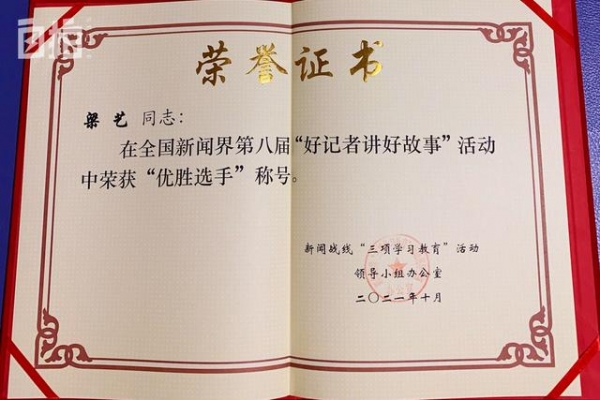 荣誉证书
梁艺 同志：
在全国新闻界第八届“好记者讲好故事”活动
中荣获“优胜选手”称号。
新闻战线“三项学习教育”活动
领导小组办公室
二〇二一年十月